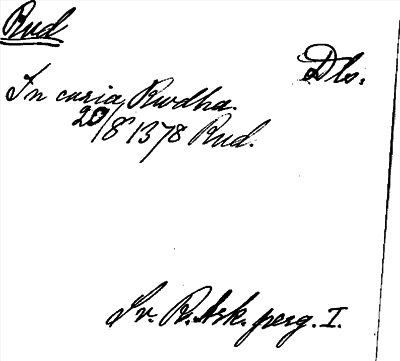 Rud
Dls.
In curia Rwdha.
20/8 1378 Rud.
Sv. R. Ark. perg. I.